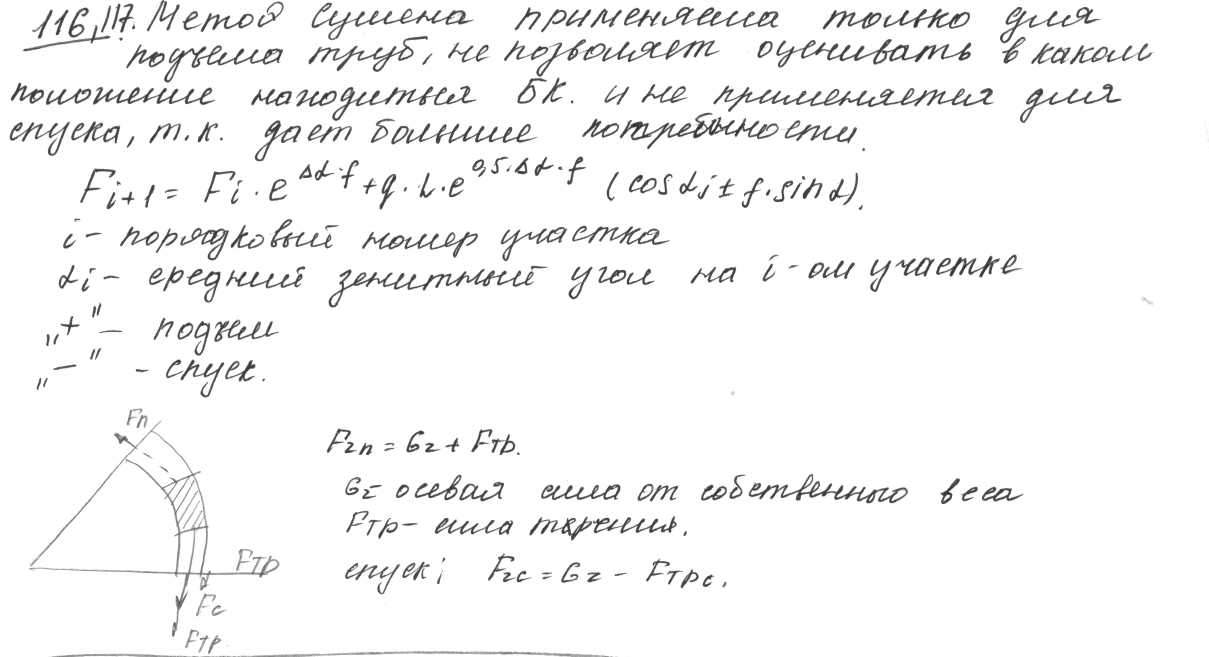 116,117. Метод Сушена применяема только для
подъема труб, не позволяет оценивать в каком
положение находиться БК. и не применяется для
спуска, т.к. дает большие погребшности.
F_{i+1} = F_i · e^{Δα·f} + q · L · e^{0,5·Δα·f} (cosα_i ± f·sinα).
i - порядковый номер участка
α_i - средний зенитный угол на i-ом участке
„+" - подъем
„-" - спуск.
Fп
F_{2п} = G_2 + F_{тр}.
G_2 - осевая сила от собственного веса
Fтр - сила терения.
Fтр
спуск; F_{2с} = G_2 - F_{трс}.
Fс
Fтр